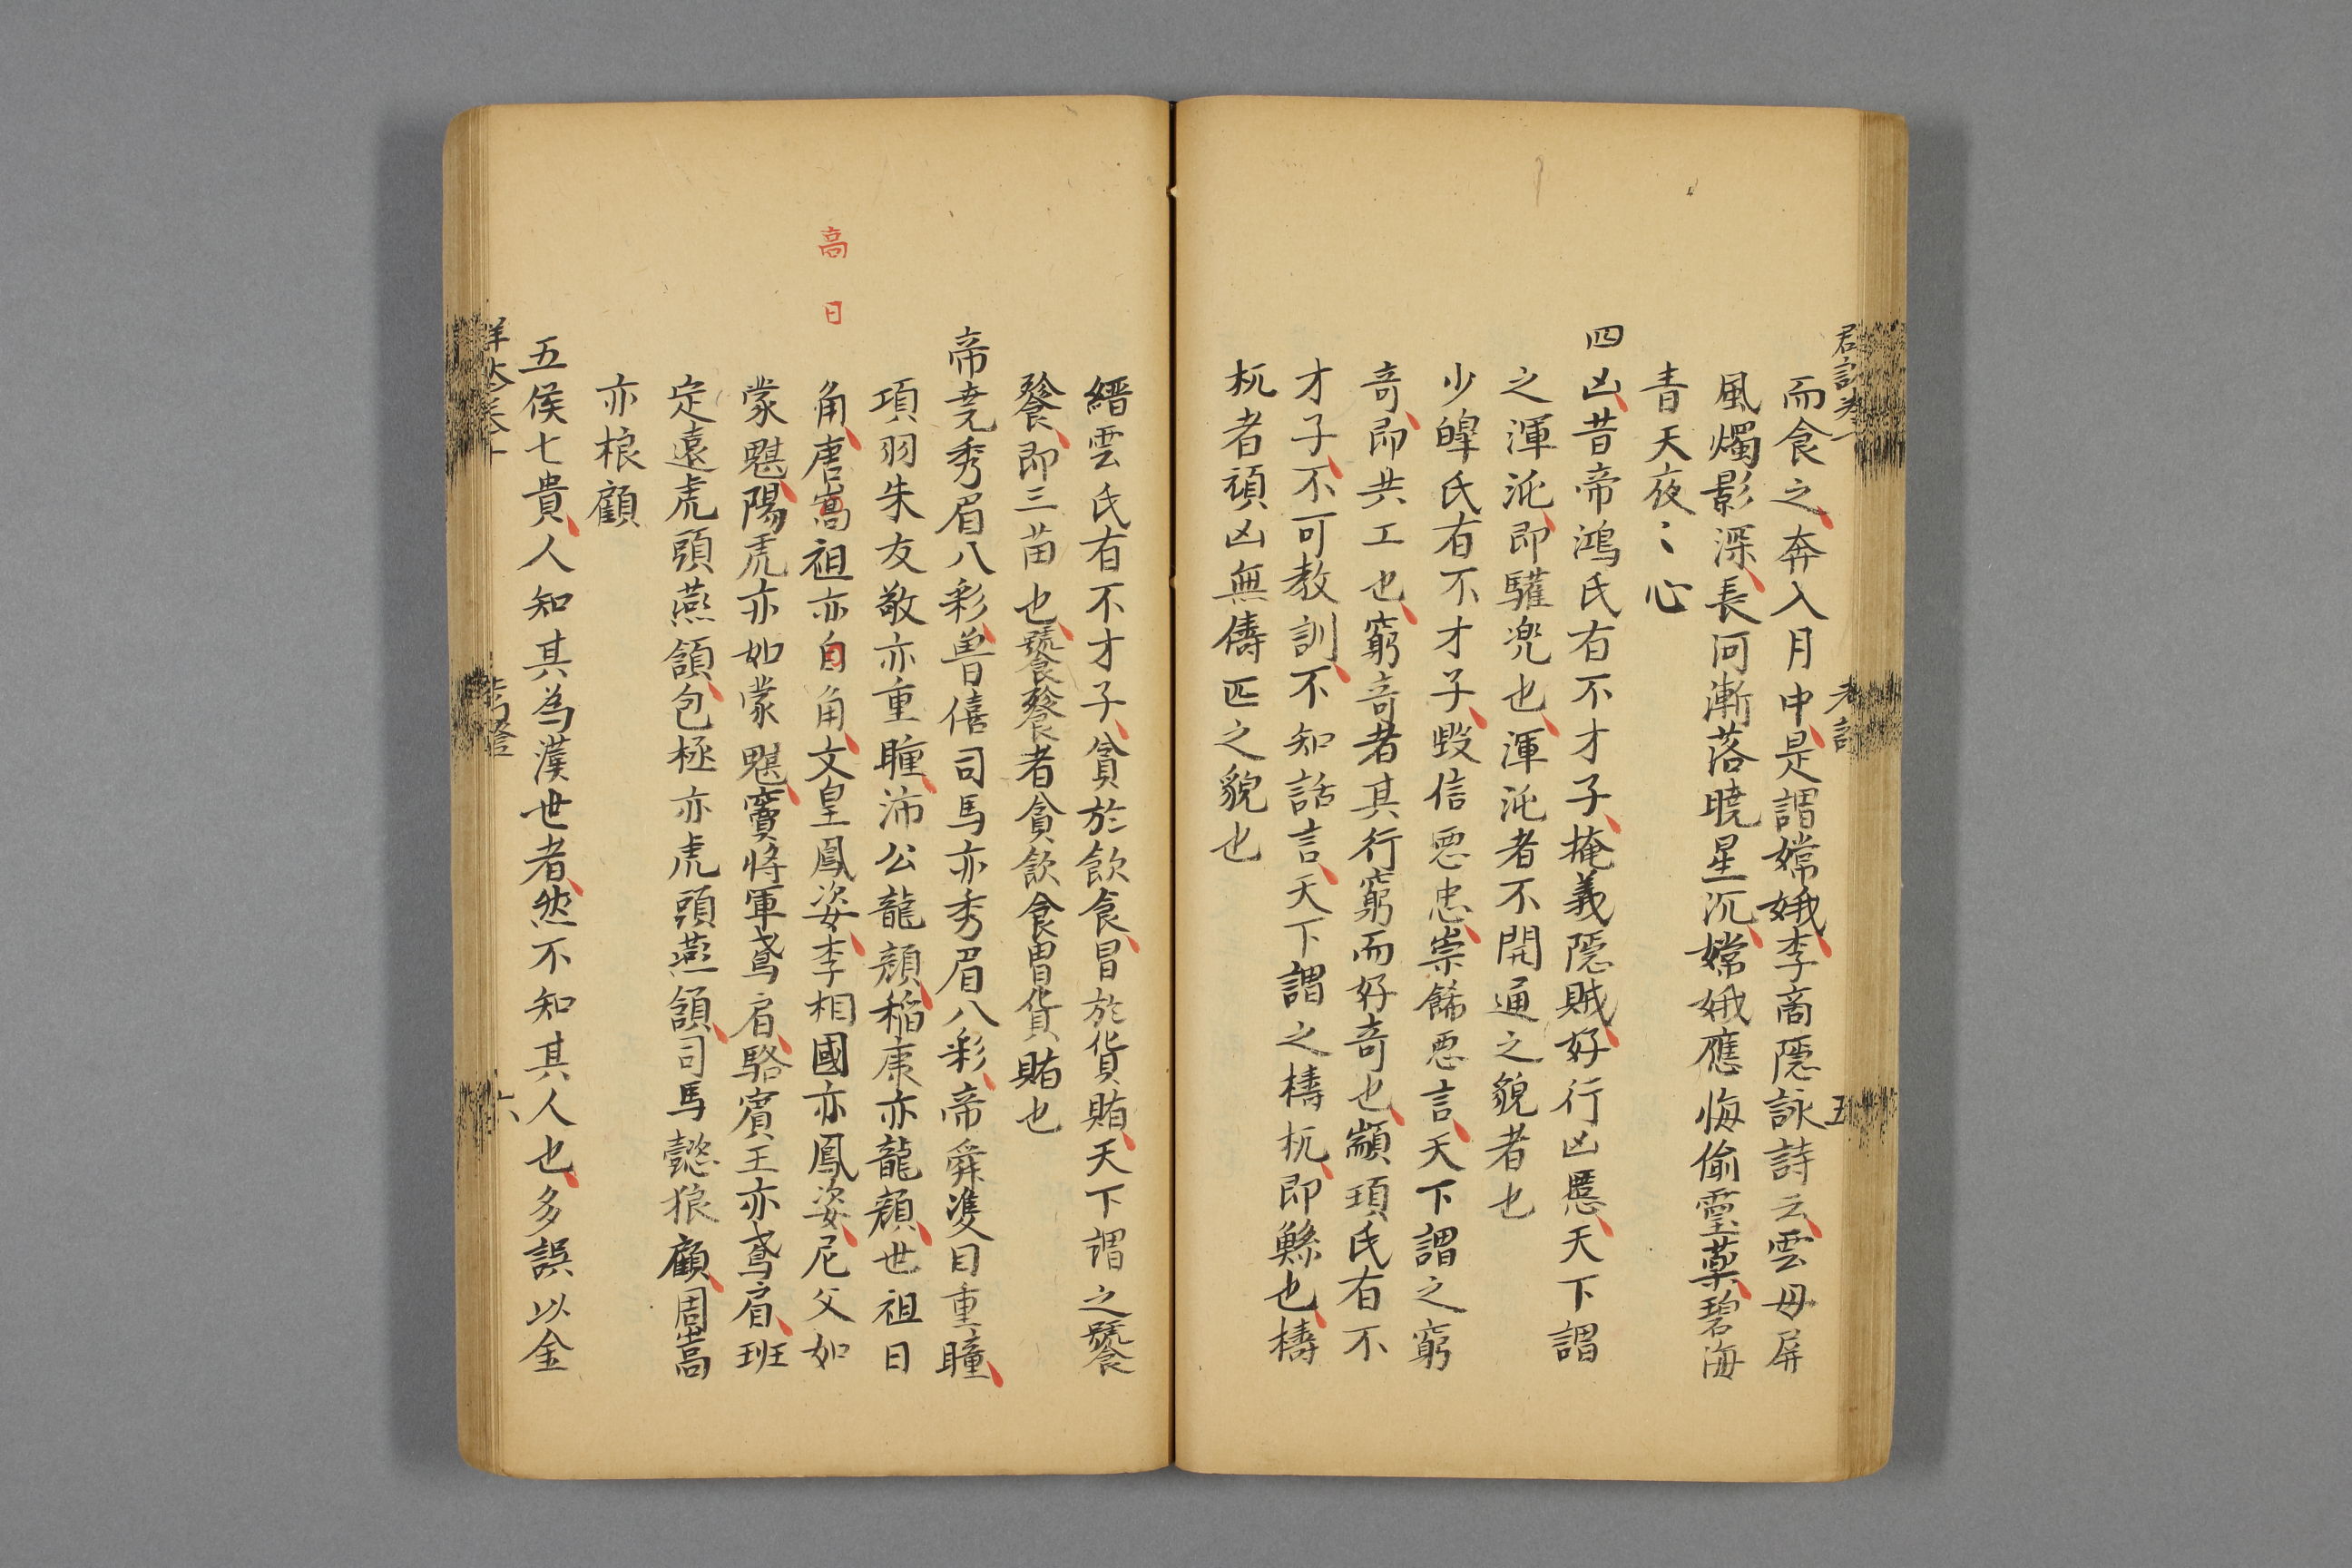 而食之奔入月中是謂嫦娥李商隱詠詩云雲母屏
風燭影深長河漸落曉星沉嫦娥應悔偷靈藥碧海
青天夜〻心
四凶昔帝鴻氏有不才子掩義隱賊好行凶慝天下謂
之渾沌即驩兜也渾沌者不開通之貌者也
少皥氏有不才子毀信惡忠崇餙惡言天下謂之窮
奇即共工也窮奇者其行窮而好奇也顓頊氏有不
才子不可教訓不知話言天下謂之檮杌即鯀也檮
杌者頑凶無儔匹之貌也
縉雲氏有不才子貪於飲食冒於貨賄天下謂之饕
餮即三苗也饕餮者貪飲食冒貨賄也
帝堯秀眉八彩魯僖司馬亦秀眉八彩帝舜雙目重瞳
項羽朱友敬亦重瞳沛公龍顏稽康亦龍顏世祖日
高 日
角唐高祖亦日角文皇鳳姿李相國亦鳳姿尼父如
蒙魌陽虎亦如蒙魌竇將軍鳶肩駱賓王亦鳶肩班
定遠虎頭燕頷包極亦虎頭燕頷司馬懿狼顧周嵩
亦狼顧
五侯七貴人知其為漢世者然不知其人也多誤以金
五
六